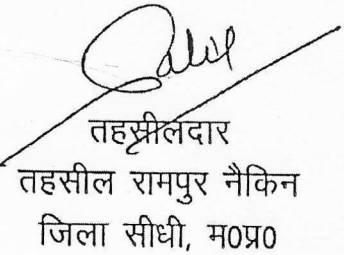 तहसीलदार
तहसील रामपुर नैकिन
जिला सीधी, म0प्र0